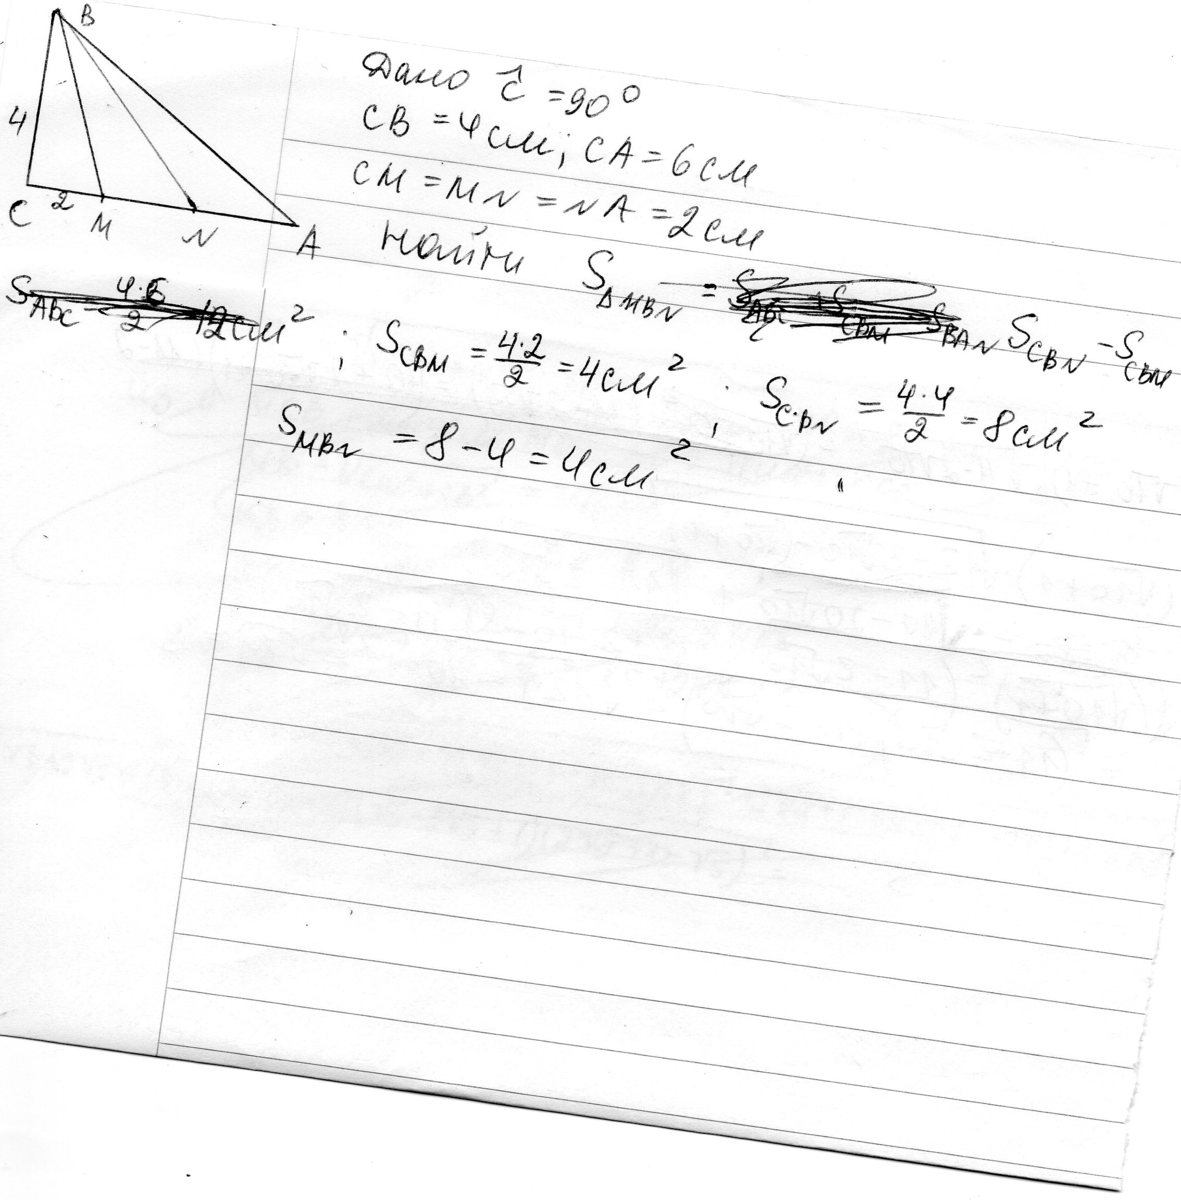 B
4
C 2 M N A
Дано Ĉ = 90°
CB = 4 см; CA = 6 см
CM = MN = NA = 2 см
Найти S△MBN = S_CBN - S_CBM
S_ABC = 4·6/2 = 12 см²; S_CBM = 4·2/2 = 4 см²; S_CBN = 4·4/2 = 8 см²
S_MBN = 8 - 4 = 4 см²